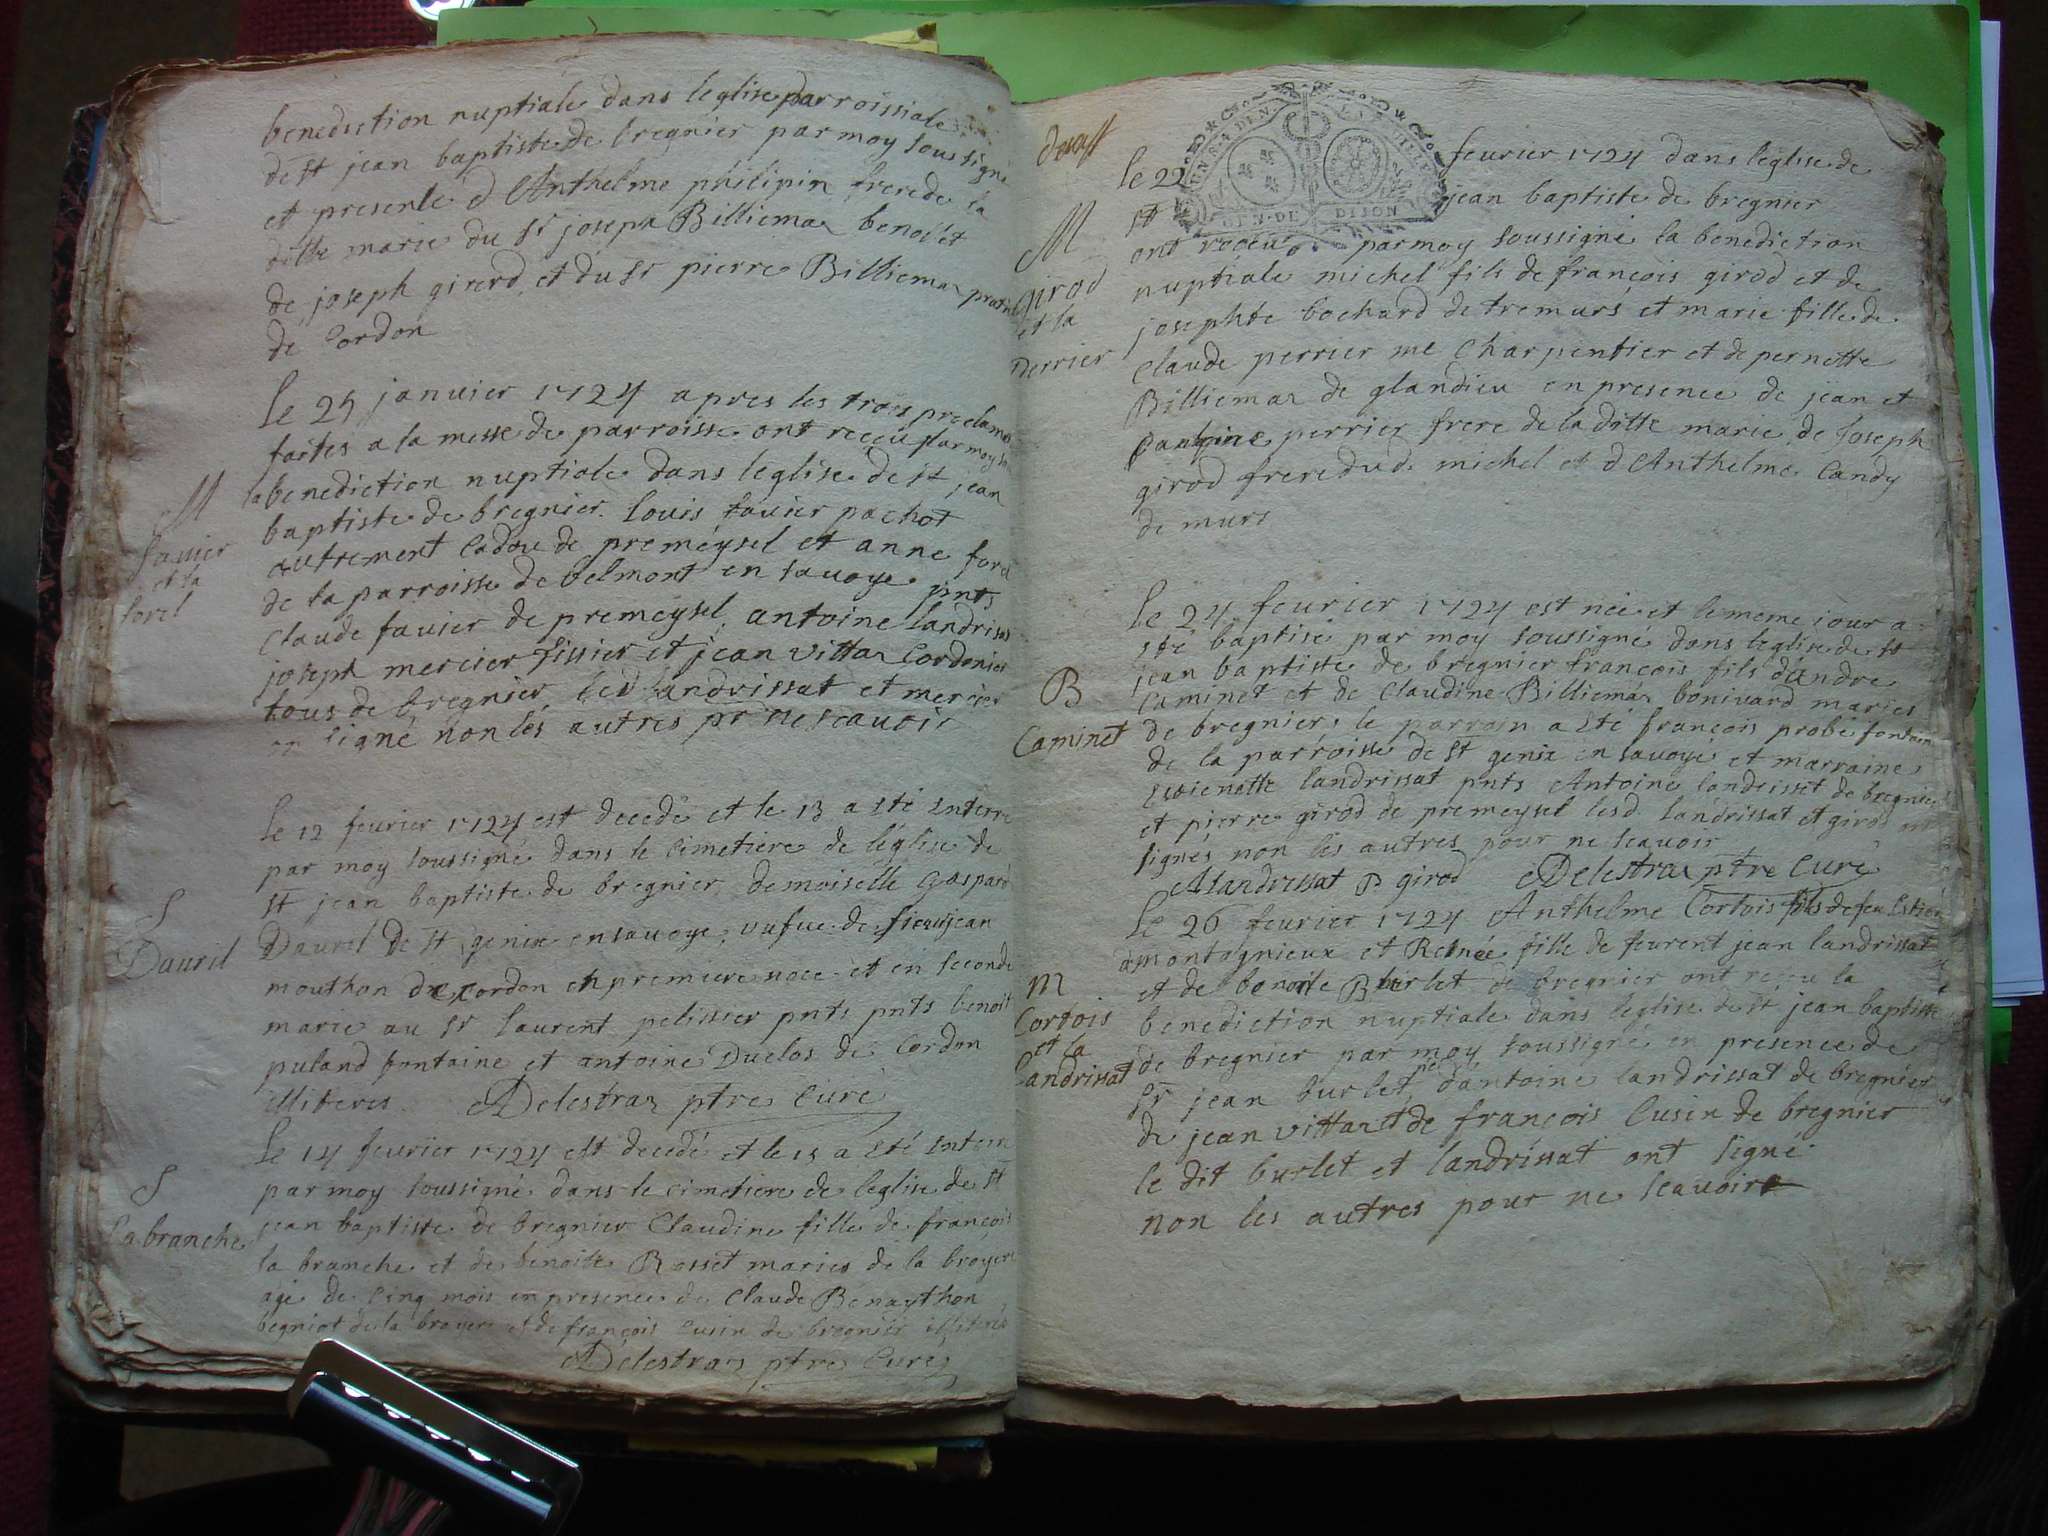 benediction nuptiale dans leglise parroissiale
de st jean baptiste de bregnier par moy soussigné
et presente d Anthelme philipin frere de la
ditte marie du sr joseph Billiemaz benoist
de joseph girerd et du sr pierre Billiemaz
de Cordon
Le 25 janvier 1724 apres les trois proclama
faites a la messe de parroisse ont reçeu par moy
la benediction nuptiale dans leglise de st jean
baptiste de bregnier louis favier pachot
autrement Cadou de premeysel et anne forel
de la parroisse de belmont en savoye pnts
Claude favier de premeysel antoine landrissat
joseph mercier tissier et jean vittaz Cordonier
tous de bregnier led landrissat et mercier
signé non les autres pr ne scavoir
M
favier
et la
forel
Le 12 fevrier 1724 est decedé et le 13 a été enterré
par moy soussigné dans le cimetiere de léglise de
st jean baptiste de bregnier demoiselle Gasparde
Dauril de st genix en savoye vefve de sieur jean
mouthon de Cordon en premiere noce et en seconde
marie au sr laurent pelissier pnts pnts benoit
puland fontaine et antoine Duclos de Cordon
illiteres Delestraz ptre Curé
S
Dauril
Le 14 fevrier 1724 est decedé et le 15 a été enterr
par moy soussigné dans le cimetiere de leglise de st
jean baptiste de bregnier Claudine fille de françois
la branche et de benoite Rosset maries de la broyere
agé de Cinq mois en presence de Claude Benaython
begniot de la broyere et de françois Cusin de bregnier illiteres
Delestraz ptre Curé
S
la branche
le 22 fevrier 1724 dans léglise de
st jean baptiste de bregnier
GEN·DE DIJON
ont reçeu par moy soussigné la benediction
nuptiale michel fils de françois girod et de
josephte bochard de tremurs et marie fille de
Claude perrier me Charpentier et de pernette
Billiemaz de glandieu en presence de jean et
perrier frere de la ditte marie de Joseph
girod frere dud. michel et d Anthelme Candy
de murs
M
girod
et la
perrier
Le 24 fevrier 1724 est née et le meme jour a
été baptisé par moy soussigné dans leglise de st
jean baptiste de bregnier françois fils d'andre
Caminet et de Claudine Billiemaz bonivard maries
de bregnier, le parrain a été françois probé fontaine
de la parroisse de st genix en savoye et marraine
landrissat pnts Antoine landrissat de bregnier
et pierre girod de premeysel lesd. landrissat et girod ont
signés non les autres pour ne scavoir
Alandrissat P girod Delestraz ptre Curé
B
Caminet
Le 26 fevrier 1724 Anthelme Cortois fils de feu
a montagnieux et Renée fille de feurent jean landrissat
et de benoite Burlet de bregnier ont reçeu la
benediction nuptiale dans leglise de st jean baptiste
de bregnier par moy soussigné en presence de
sr jean burlet, d'antoine landrissat de bregnier
de jean vittaz et de françois Cusin de bregnier
le dit burlet et landrissat ont signé
non les autres pour ne scavoir
M
Cortois
et la
Landrissat